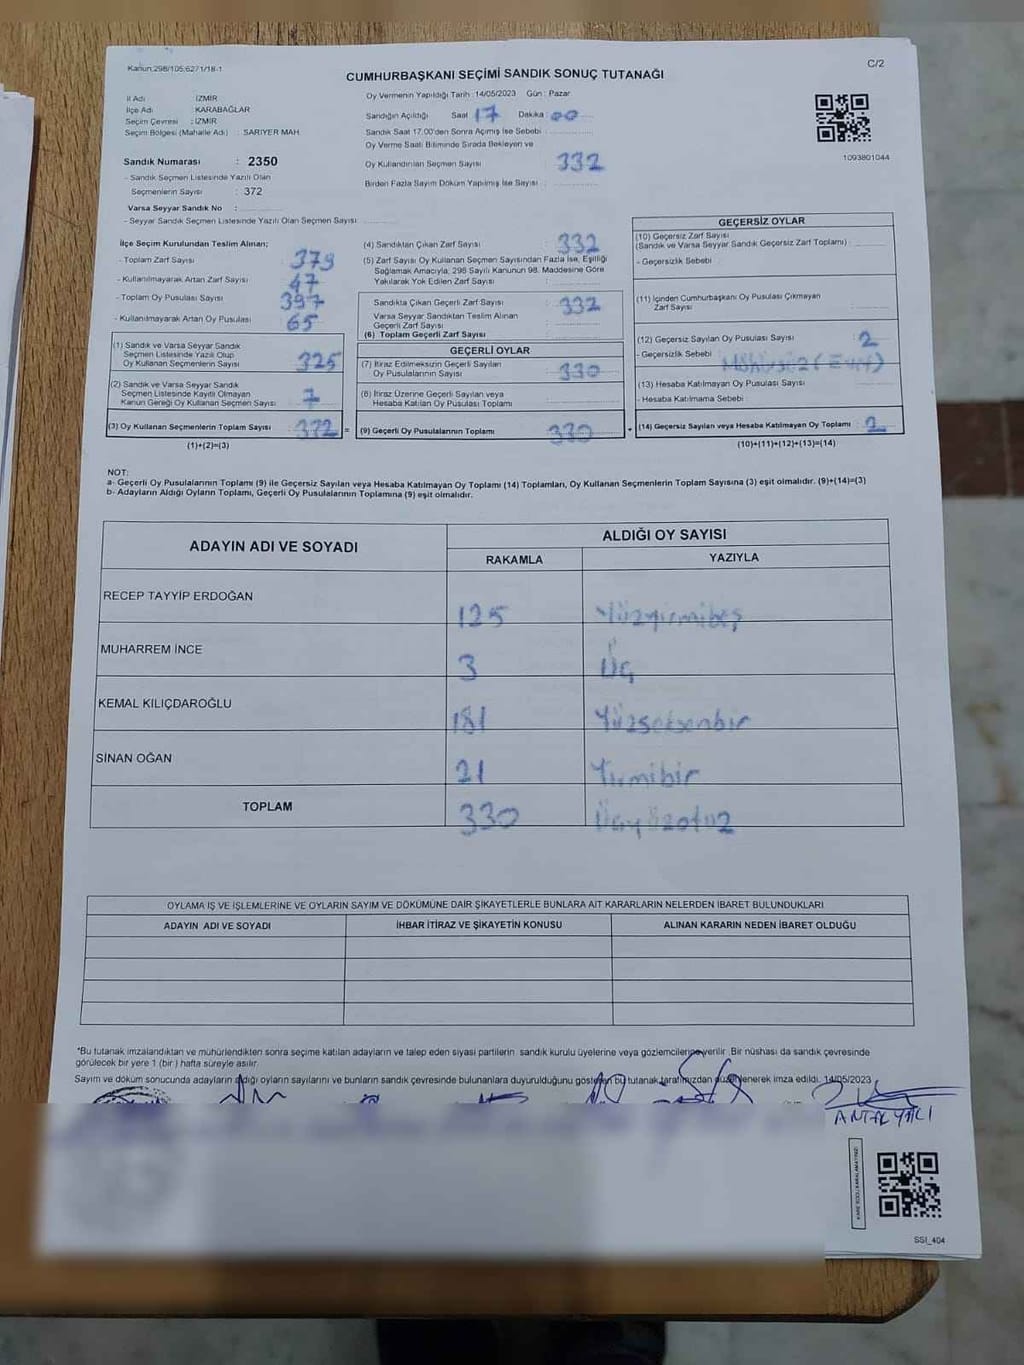 Kanun:298/105,6271/18-1
C/2
CUMHURBAŞKANI SEÇİMİ SANDIK SONUÇ TUTANAĞI
İl Adı : İZMİR
İlçe Adı : KARABAĞLAR
Seçim Çevresi : İZMİR
Seçim Bölgesi (Mahalle Adı) : SARIYER MAH.
Sandık Numarası : 2350
- Sandık Seçmen Listesinde Yazılı Olan
Seçmenlerin Sayısı : 372
Varsa Seyyar Sandık No :
- Seyyar Sandık Seçmen Listesinde Yazılı Olan Seçmen Sayısı:
Oy Vermenin Yapıldığı Tarih :14/05/2023 Gün : Pazar
Sandığın Açıldığı Saat 17 Dakika 00
Sandık Saat 17.00'den Sonra Açılmış İse Sebebi :
Oy Verme Saati Bitiminde Sırada Bekleyen ve
Oy Kullandırılan Seçmen Sayısı : 332
Birden Fazla Sayım Döküm Yapılmış İse Sayısı :
1093801044
İlçe Seçim Kurulundan Teslim Alınan;
- Toplam Zarf Sayısı : 379
- Kullanılmayarak Artan Zarf Sayısı : 47
- Toplam Oy Pusulası Sayısı : 397
- Kullanılmayarak Artan Oy Pusulası : 65
(1) Sandık ve Varsa Seyyar Sandık
Seçmen Listesinde Yazılı Olup
Oy Kullanan Seçmenlerin Sayısı : 325
(2) Sandık ve Varsa Seyyar Sandık
Seçmen Listesinde Kayıtlı Olmayan
Kanun Gereği Oy Kullanan Seçmen Sayısı : 7
(3) Oy Kullanan Seçmenlerin Toplam Sayısı : 332 =
(1)+(2)=(3)
(4) Sandıktan Çıkan Zarf Sayısı : 332
(5) Zarf Sayısı Oy Kullanan Seçmen Sayısından Fazla İse, Eşitliği
Sağlamak Amacıyla, 298 Sayılı Kanunun 98. Maddesine Göre
Yakılarak Yok Edilen Zarf Sayısı :
Sandıkta Çıkan Geçerli Zarf Sayısı : 332
Varsa Seyyar Sandıktan Teslim Alınan
Geçerli Zarf Sayısı :
(6) Toplam Geçerli Zarf Sayısı :
GEÇERLİ OYLAR
(7) İtiraz Edilmeksizin Geçerli Sayılan
Oy Pusulalarının Sayısı : 330
(8) İtiraz Üzerine Geçerli Sayılan veya
Hesaba Katılan Oy Pusulası Toplamı :
(9) Geçerli Oy Pusulalarının Toplamı : 330 +
GEÇERSİZ OYLAR
(10) Geçersiz Zarf Sayısı
(Sandık ve Varsa Seyyar Sandık Geçersiz Zarf Toplamı) :
- Geçersizlik Sebebi :
(11) İçinden Cumhurbaşkanı Oy Pusulası Çıkmayan
Zarf Sayısı :
(12) Geçersiz Sayılan Oy Pusulası Sayısı : 2
- Geçersizlik Sebebi : Mühürsüz
(13) Hesaba Katılmayan Oy Pusulası Sayısı :
- Hesaba Katılmama Sebebi :
(14) Geçersiz Sayılan veya Hesaba Katılmayan Oy Toplamı : 2
(10)+(11)+(12)+(13)=(14)
NOT:
a- Geçerli Oy Pusulalarının Toplamı (9) ile Geçersiz Sayılan veya Hesaba Katılmayan Oy Toplamı (14) Toplamları, Oy Kullanan Seçmenlerin Toplam Sayısına (3) eşit olmalıdır. (9)+(14)=(3)
b- Adayların Aldığı Oyların Toplamı, Geçerli Oy Pusulalarının Toplamına (9) eşit olmalıdır.
ADAYIN ADI VE SOYADI
ALDIĞI OY SAYISI
RAKAMLA YAZIYLA
RECEP TAYYİP ERDOĞAN 125 Yüzyirmibeş
MUHARREM İNCE 3 Üç
KEMAL KILIÇDAROĞLU 181 Yüzseksenbir
SİNAN OĞAN 21 Yirmibir
TOPLAM 330 Üçyüzotuz
OYLAMA İŞ VE İŞLEMLERİNE VE OYLARIN SAYIM VE DÖKÜMÜNE DAİR ŞİKAYETLERLE BUNLARA AİT KARARLARIN NELERDEN İBARET BULUNDUKLARI
ADAYIN ADI VE SOYADI İHBAR İTİRAZ VE ŞİKAYETİN KONUSU ALINAN KARARIN NEDEN İBARET OLDUĞU
*Bu tutanak imzalandıktan ve mühürlendikten sonra seçime katılan adayların ve talep eden siyasi partilerin sandık kurulu üyelerine veya gözlemcilerine verilir. Bir nüshası da sandık çevresinde
görülecek bir yere 1 (bir) hafta süreyle asılır.
Sayım ve döküm sonucunda adayların aldığı oyların sayılarını ve bunların sandık çevresinde bulunanlara duyurulduğunu gösteren bu tutanak tarafımızdan düzenlenerek imza edildi. 14/05/2023
ANTALYALI
SSI_404